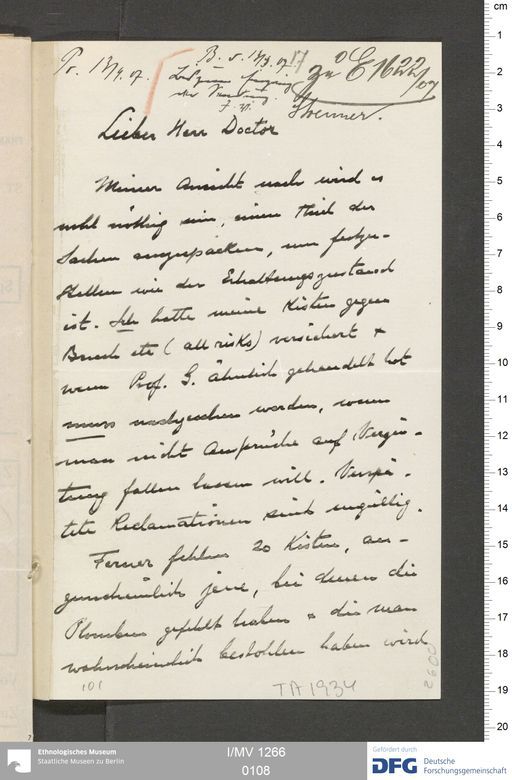 Pr. 13/4. 07.
B. v. 13/3. 07.
zu E 1622/07
Lieber Herr Doctor
Meiner Ansicht nach wird es
wohl nöthig sein, einen Theil der
Sachen auszupacken, um festzu-
stellen wie der Erhaltungszustand
ist. Ich hatte meine Kisten gegen
Bruch etc (all risks) versichert &
wenn Prof. S. ähnlich gehandelt hat
muss nachgesehen werden, wenn
man nicht Ansprüche auf Vergü-
tung fallen lassen will. Verspä-
tete Reclamationen sind ungültig.
Ferner fehlen 20 Kisten, au-
genscheinlich jene, bei denen die
Plomben gefehlt haben & die man
wahrscheinlich bestohlen haben wird
101
TA 1934
2600
Ethnologisches Museum
Staatliche Museen zu Berlin
I/MV 1266
0108
Gefördert durch
DFG Deutsche
Forschungsgemeinschaft
cm
1
2
3
4
5
6
7
8
9
10
11
12
13
14
15
16
17
18
19
20